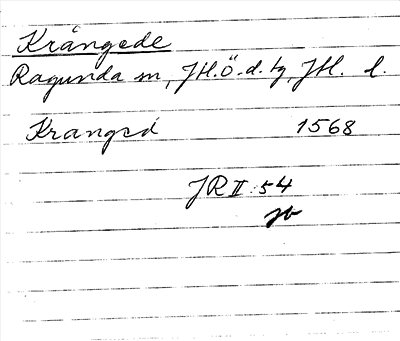 Krångede
Ragunda sn, JH.Ö.d. tg, JH. l.
Kranged 1568
JR II:54